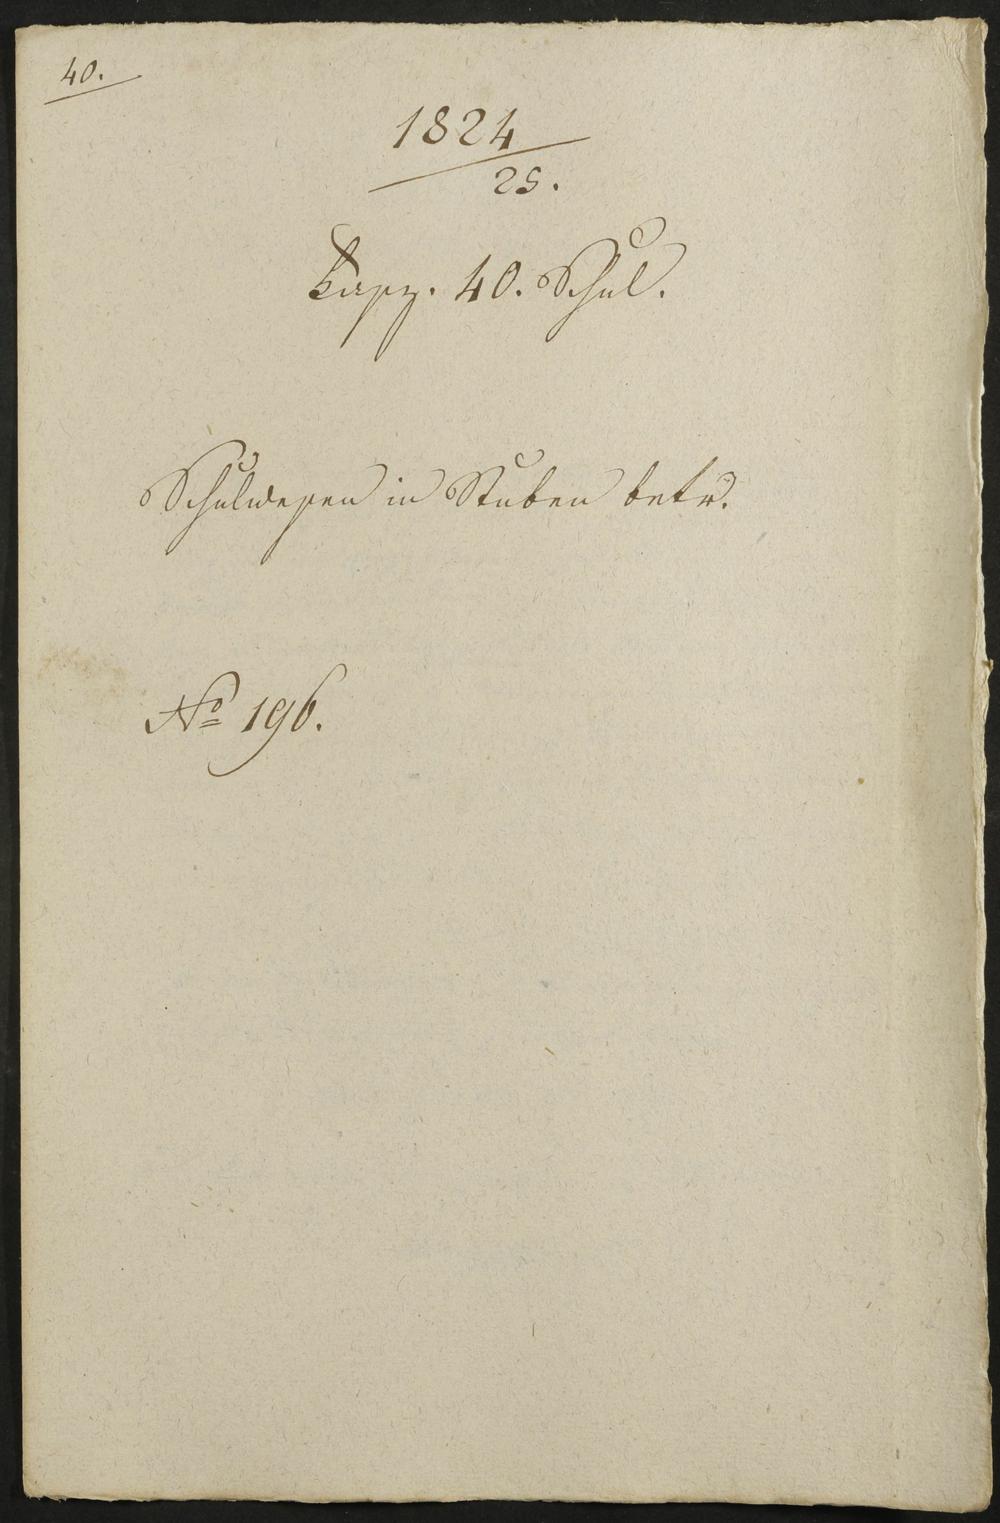 40.
1824
25.
40. Schul.
Schulwesen in Stuben betr.
No 196.